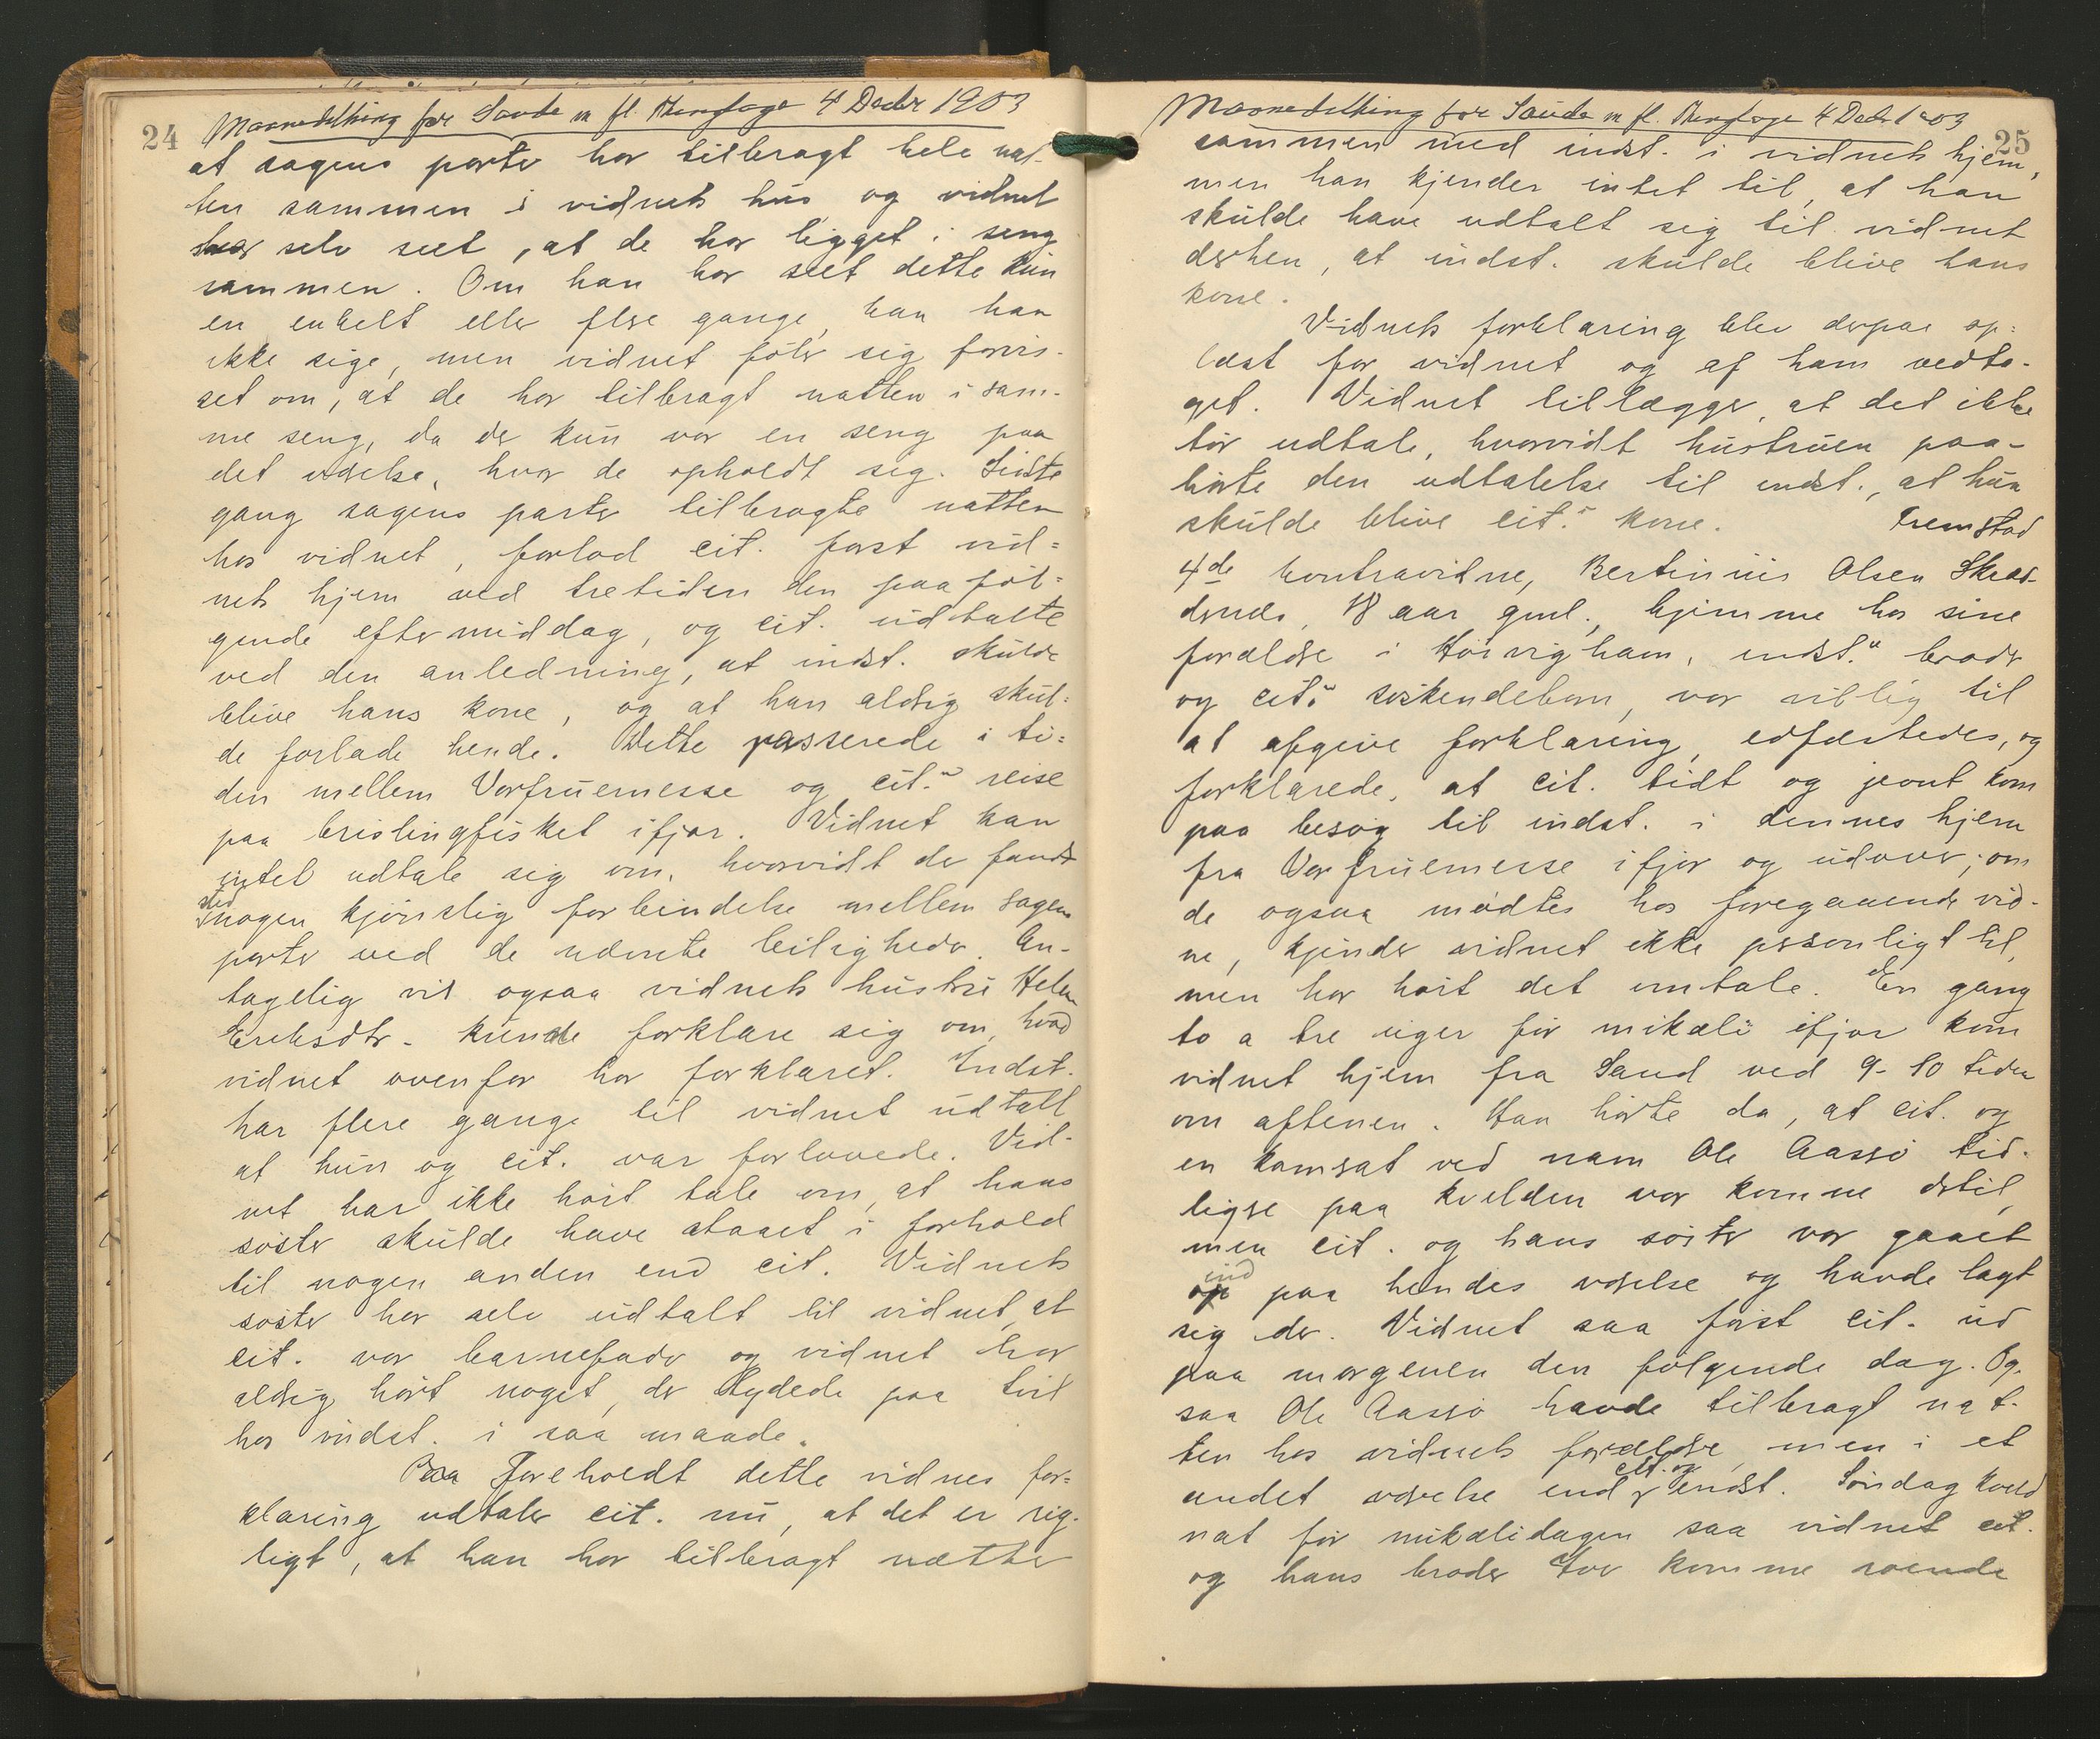 24
Maanedsthing for Saude m fl. thinglage 4 Decbr 1903
at sagens parter har tilbragt hele nat-
ten sammen i vidnets hus og vidnet
har selv seet, at de har ligget i seng
sammen. Om han har seet dette kun
en enkelt eller flere gange, kan han
ikke sige, men vidnet føler sig forvis-
set om, at de har tilbragt natten i sam-
me seng, da der kun var en seng paa
det værelse, hvor de opholdt sig. Sidste
gang sagens parter tilbragte natten
hos vidnet, forlod cit. først vid=
nets hjem ved tretiden den paaføl=
gende eftermiddag, og cit. udtalte
ved den anledning, at indst. skulde
blive hans kone, og at han aldrig skul=
de forlade hende. Dette passerede i ti=
den mellem Vorfruemesse og cit.s reise
paa brislingfisket ifjor. Vidnet kan
intet udtale sig om, hvorvidt der fandt
sted
nogen kjønslig forbindelse mellem sagens
parter ved de nævnte leiligheder. An-
tagelig vil ogsaa vidnets hustru Helene
Eriksdtr. kunde forklare sig om, hvad
vidnet ovenfor har forklaret. Indst.
har flere gange til vidnet udtalt
at hun og cit. var forlovede. Vid-
net har ikke hørt tale om, at hans
søster skulde have staaet i forhold
til nogen anden end cit. Vidnets
søster har selv udtalt til vidnet, at
cit. var barnefader og vidnet har
aldrig hørt noget, der tydede paa tvil
hos indst. i saa maade.
Paa Foreholdt dette vidnes for=
klaring udtaler cit. nu, at det er rig-
tigt, at han har tilbragt nætter
25
Maanedsthing for Saude m fl. thinglage 4 Decbr 1903
sammen med indst. i vidnets hjem,
men han kjender intet til, at han
skulde have udtalt sig til vidnet
derhen, at indst. skulde blive hans
kone.
Vidnets forklaring blev derpaa op=
læst for vidnet og af ham vedta-
get. Vidnet tillægger, at det ikke
tør udtale, hvorvidt hustruen paa-
hørte den udtalelse til indst., at hun
skulde blive cit.s kone. Fremstod
4de kontravidne, Bertinius Olsen
18 aar gml., hjemme hos sine
forældre i Høivigham, indst.s broder
og cit.s søskendebarn, var villig til
at afgive forklaring, edfæstedes, og
forklarede, at cit. tidt og jevnt kom
paa besøg til indst. i dennes hjem
fra Vorfruemesse ifjor og udover; om
de ogsaa mødtes hos foregaaende vid-
ne, kjender vidnet ikke personligt til,
men har hørt det omtale. En gang
to a tre uger før mikæli ifjor kom
vidnet hjem fra Sand ved 9-10 tiden
om aftenen. Han hørte da, at cit. og
en kamerat ved navn Ole Aassø tid-
ligere paa kvelden var komne dertil,
men cit. og hans søster var gaaet
ind
op paa hendes værelse og havde lagt
sig der. Vidnet saa først cit. ud
paa morgenen den følgende dag. Og-
saa Ole Aassø havde tilbragt nat-
ten hos vidnets forældre, men i et
cit. og
andet værelse end indst. Søndag kveld
nat før mikælidagen saa vidnet cit.
og hans broder Iver komme roende